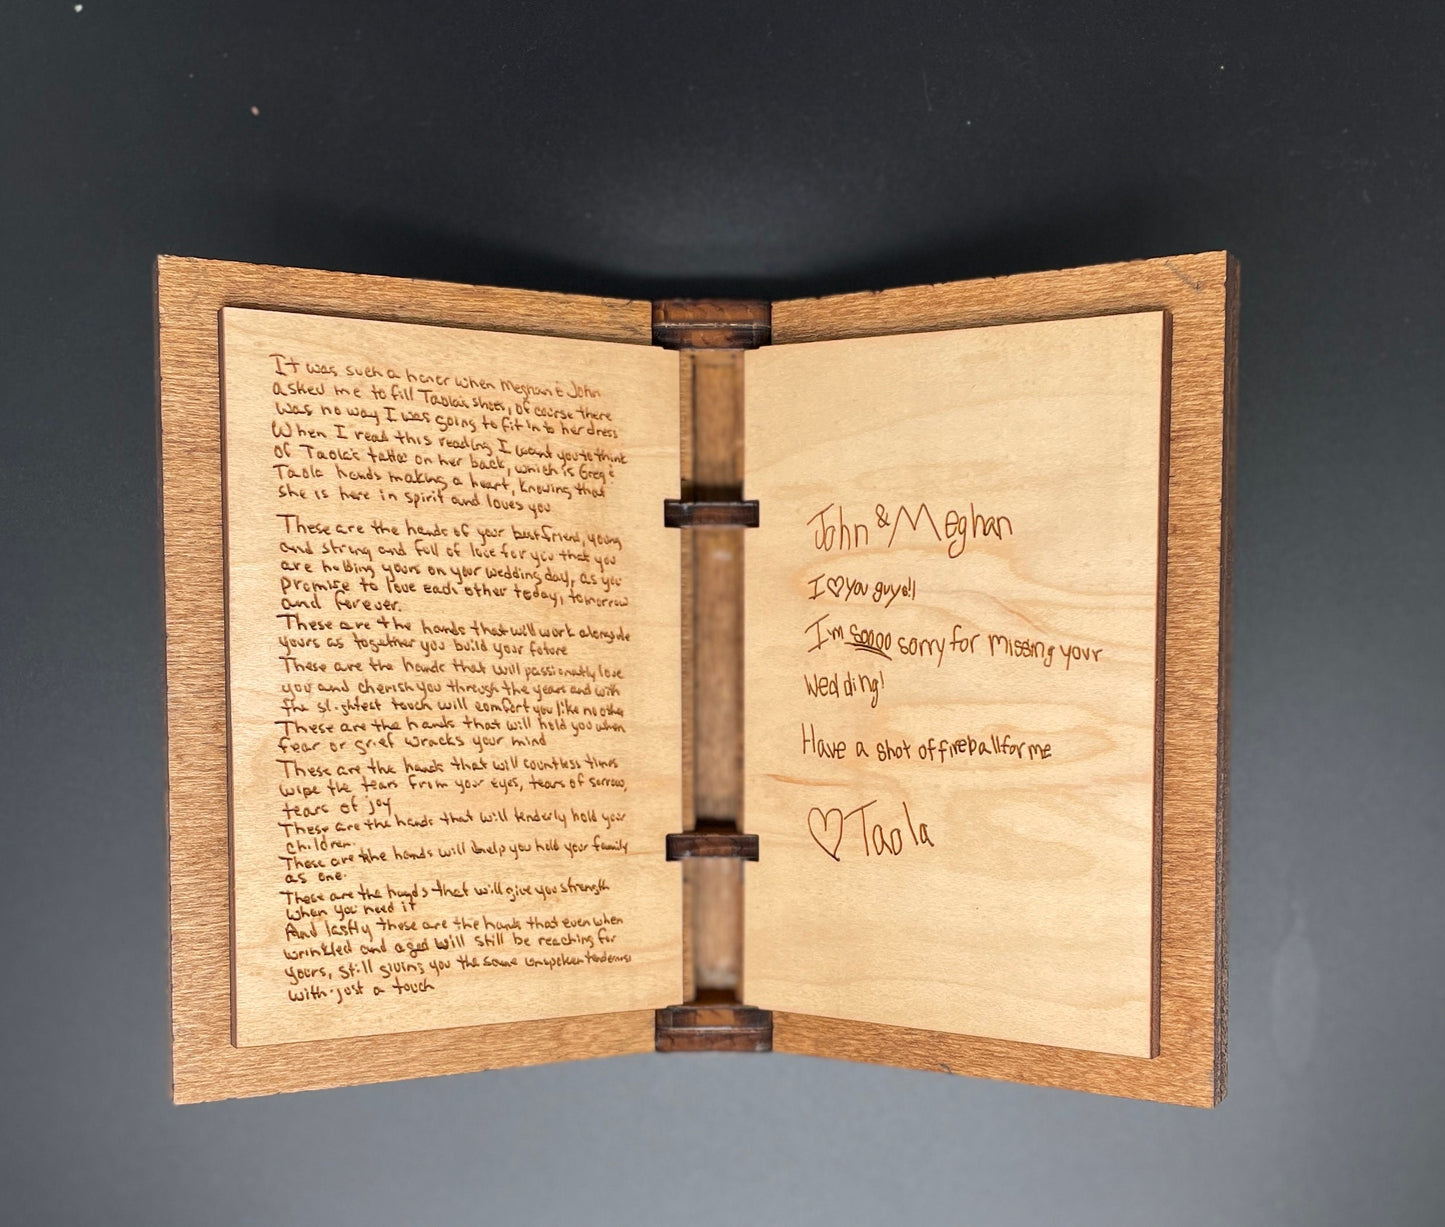 It was such a honor when Meghan & John
asked me to fill Taola's shoes, of course there
was no way I was going to fit into her dress
When I read this reading I want you to think
of Taola's tattoo on her back, which is Greg &
Taola hands making a heart, knowing that
she is here in spirit and loves you
These are the hands of your best friend, young
and strong and full of love for you that you
are holding yours on your wedding day, as you
promise to love each other today, tomorrow
and forever.
These are the hands that will work alongside
yours as together you build your future
These are the hands that will passionatly love
you and cherish you through the years and with
the slightest touch will comfort you like no other
These are the hands that will hold you when
fear or grief wracks your mind
These are the hands that will countless times
wipe the tears from your eyes, tears of sorrow,
tears of joy
These are the hands that will tenderly hold your
children.
These are the hands will help you hold your family
as one.
These are the hands that will give you strength
when you need it
And lastly these are the hands that even when
wrinkled and aged will still be reaching for
yours, still giving you the same unspoken tenderness
with just a touch
John & Meghan
I ♡ you guys!!
I'm soooo sorry for missing your
Wedding!
Have a shot of fireball for me
♡ Taola